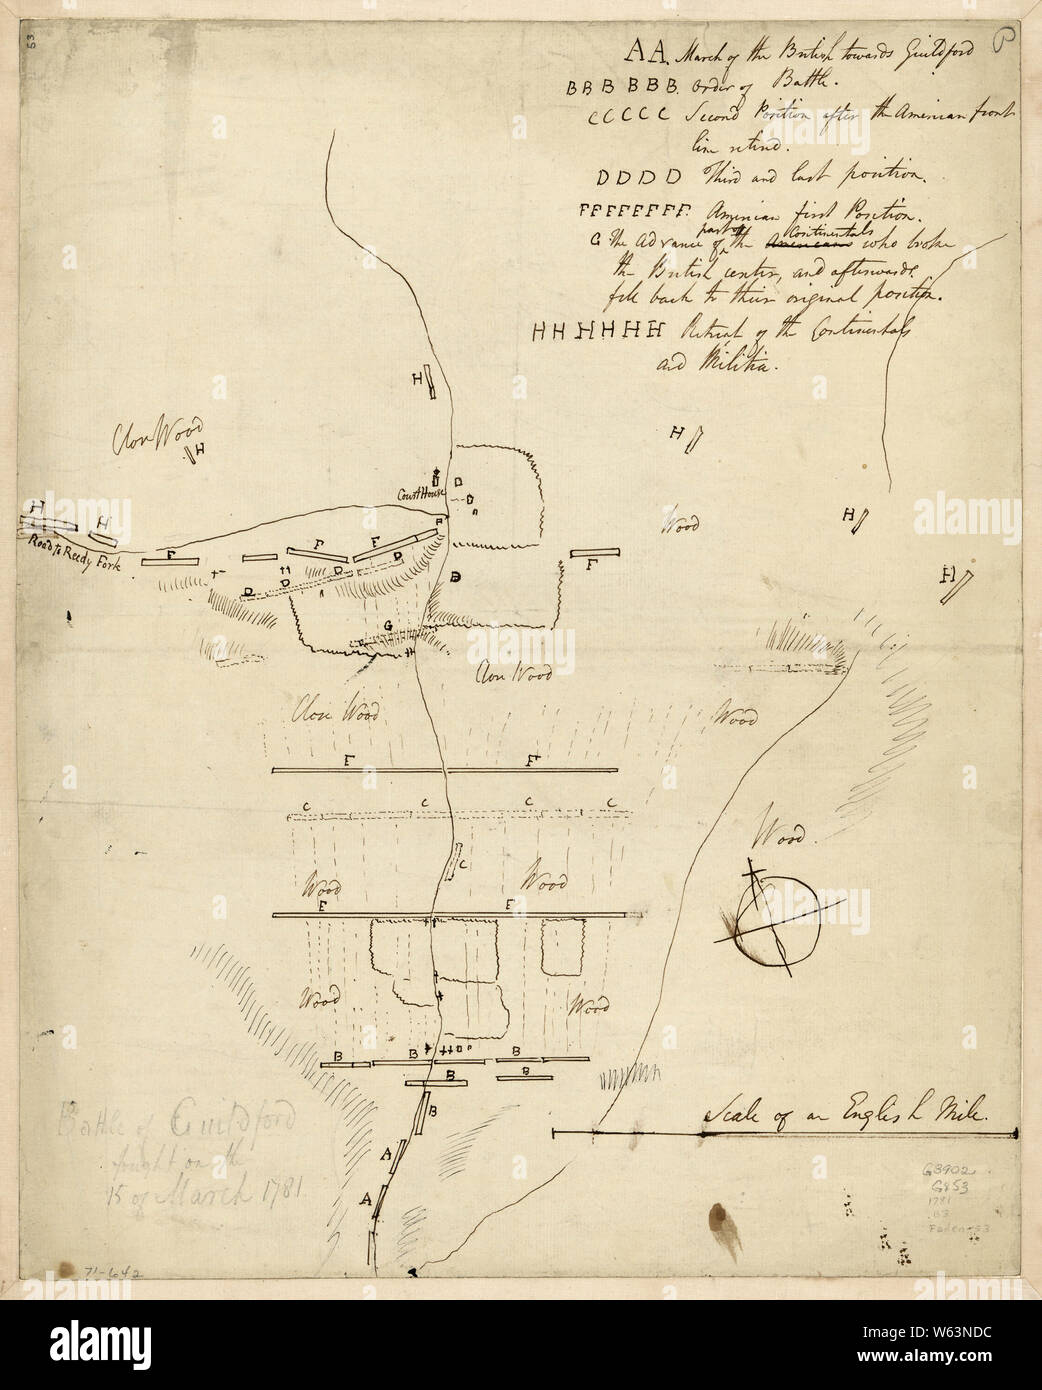 53
AA. March of the British towards Guildford
BBB BBB. Order of Battle.
CCCCC Second Position after the American front
line retired.
DDDD Third and last position.
FFFFFFFF. American first Position.
G the advance part of the Americans Continentals who broke
the British center, and afterwards
fell back to their original position.
HHHHHH Retreat of the Continentals
and Militia.
H
Clon Wood
H
H
Court House
D
D
Wood
H
H
H
H
Road to Reedy Fork
F
F
F
F
D
D
D
D
F
G
Clon Wood
Clon Wood
Wood
F
F
C
C
C
C
C
Wood
Wood
Wood.
F
F
Wood
Wood
B
B
B
B
B
B
A
A
Scale of an English Mile.
Battle of Guildford
fought on the
15 of March 1781.
G3902
G853
1781
.B3
Faden 53
71-642
alamy
a
alamy
Image ID: W63NDC
www.alamy.com